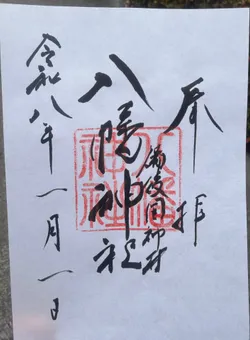 奉拝
備後国
八幡神社
八幡
神社
令和八年一月一日